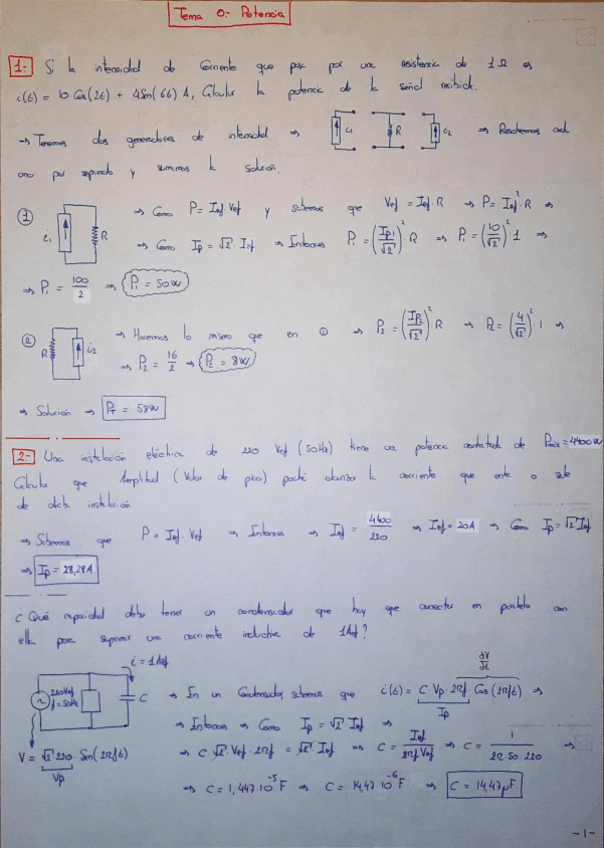 Tema 0.- Potencia
1.- Si la intensidad de corriente que pasa por una resistencia de 1 Ω es
i(t) = 10 Cos(2t) + 4 Sen(6t) A, Calcular la potencia de la señal recibida.
→ Tenemos dos generadores de intensidad ⇒ i1 R i2 ⇒ Resolvemos cada
uno por separado y sumamos la solución.
① i1 R → Como P = Ief Vef y sabemos que Vef = Ief · R ⇒ P = Ief² · R ⇒
→ Como Ip = √2 · Ief ⇒ Entonces P1 = (Ip1/√2)² · R ⇒ P1 = (10/√2)² · 1 ⇒
⇒ P1 = 100/2 ⇒ P1 = 50W
② R i2 → Hacemos lo mismo que en ① ⇒ P2 = (Ip2/√2)² R ⇒ P2 = (4/√2)² · 1 ⇒
⇒ P2 = 16/2 ⇒ P2 = 8W
⇒ Solución ⇒ PT = 58W
2.- Una instalación eléctrica de 220 Vef (50Hz) tiene una potencia contratada de Pmáx = 4400 W
Calcular que Amplitud (Valor de pico) podrá alcanzar la corriente que entra o sale
de dicha instalación
⇒ Sabemos que P = Ief · Vef ⇒ Entonces ⇒ Ief = 4400/220 ⇒ Ief = 20A ⇒ Como Ip = √2 Ief
⇒ Ip = 28,28A
¿Qué capacidad debe tener un condensador que hay que conectar en paralelo con
ella para suprimir una corriente inductiva de 1Aef?
i = 1Aef
dV/dt
220Vef f = 50Hz C → En un Condensador sabemos que i(t) = C · Vp · 2πf · Cos(2πft) ⇒
Ip
⇒ Entonces ⇒ Como Ip = √2 Ief ⇒
V = √2 · 220 · Sen(2πft) ⇒ C · √2 · Vef · 2πf = √2 Ief ⇒ C = Ief/2πf Vef ⇒ C = 1/2π · 50 · 220 ⇒
Vp
⇒ C = 1,447 · 10⁻⁵ F ⇒ C = 14,47 · 10⁻⁶ F ⇒ C = 14,47μF
-1-